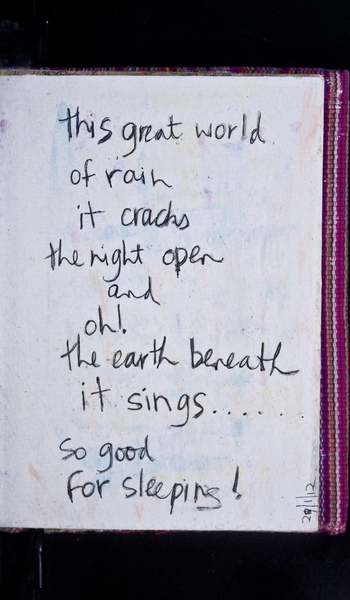 this great world
of rain
it cracks
the night open
and
oh!
the earth beneath
it sings.......
so good
for sleeping!
28/1/12